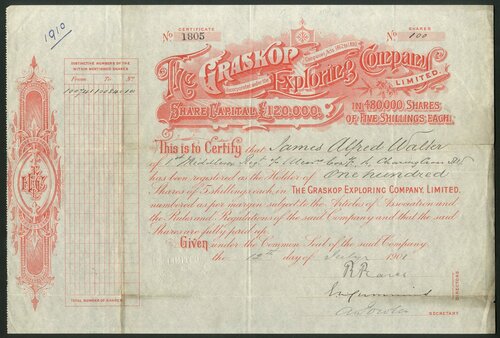 1910
CERTIFICATE
No 1805
SHARES
No 100
THE GRASKOP
Incorporated under the Companies Acts 1862 to 1900
Exploring Company
LIMITED.
SHARE CAPITAL £120,000.
IN 480,000 SHARES
OF FIVE SHILLINGS EACH.
DISTINCTIVE NUMBERS OF THE
WITHIN MENTIONED SHARES.
From To No
This is to Certify that James Alfred Walker
of
has been registered as the Holder of One hundred
Shares of 5 shillings each, in THE GRASKOP EXPLORING COMPANY, LIMITED.
numbered as per margin subject to the Articles of Association and
the Rules and Regulations of the said Company and that the said
Shares are fully paid up.
Given under the Common Seal of the said Company.
the 12th day of July 1901
DIRECTORS.
SECRETARY
TOTAL NUMBER OF SHARES